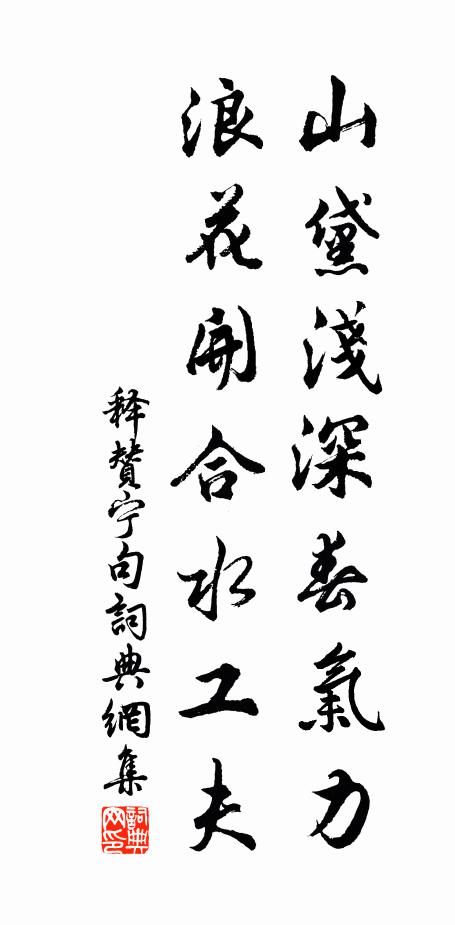 山黛淺深春氣力
浪花開合水工夫
释贊宁句詞典網集
詞典网印